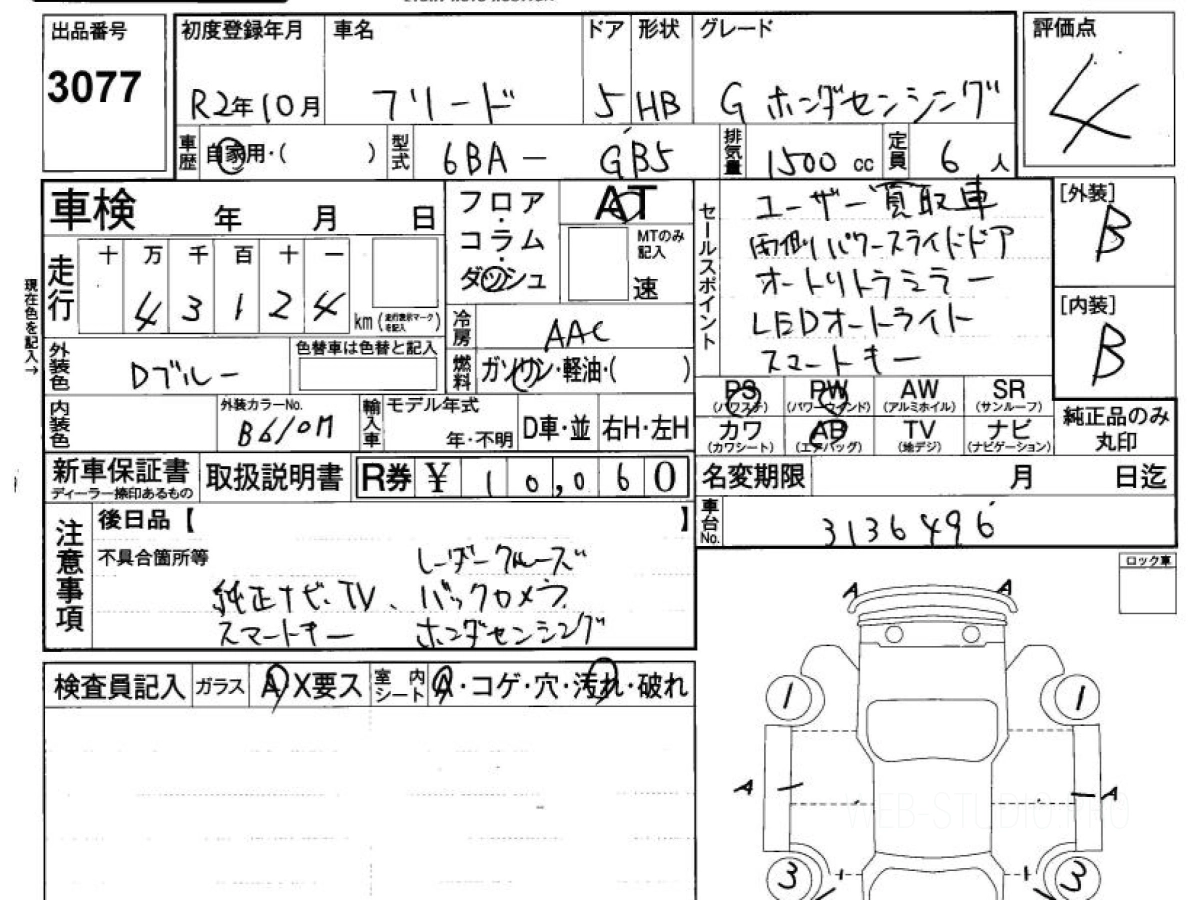 出品番号
3077
初度登録年月
R2年10月
車名
フリード
ドア
5
形状
HB
グレード
G ホンダセンシング
評価点
4
車歴
自家用・( )
型式
6BA-GB5
排気量
1500 cc
定員
6人
車検 年 月 日
フロア・コラム・ダッシュ
AT
MTのみ記入
速
セールスポイント
ユーザー買取車
両側パワースライドドア
オートリトラミラー
LEDオートライト
スマートキー
[外装]
B
[内装]
B
現在色を記入→
走行
十 万 千 百 十 一
4 3 1 2 4
km(走行表示マークを記入)
冷房
AAC
燃料
ガソリン・軽油・( )
外装色
Dブルー
色替車は色替と記入
PS
(パワステ)
PW
(パワーウインド)
AW
(アルミホイル)
SR
(サンルーフ)
カワ
(カワシート)
AB
(エアバッグ)
TV
(地デジ)
ナビ
(ナビゲーション)
純正品のみ
丸印
内装色
外装カラーNo.
B610M
輸入車
モデル年式
年・不明
D車・並
右H・左H
新車保証書
ディーラー捺印あるもの
取扱説明書
R券 ¥ 10,060
名変期限 月 日迄
車台No.
3136496
注意事項
後日品【 】
不具合箇所等
レーダークルーズ
純正ナビ、TV、バックカメラ
スマートキー ホンダセンシング
ロック車
検査員記入
ガラス
A X要ス
室内シート
A・コゲ・穴・汚れ・破れ
A A
1 1
A A
WEB-STUDIO.PRO
3 3